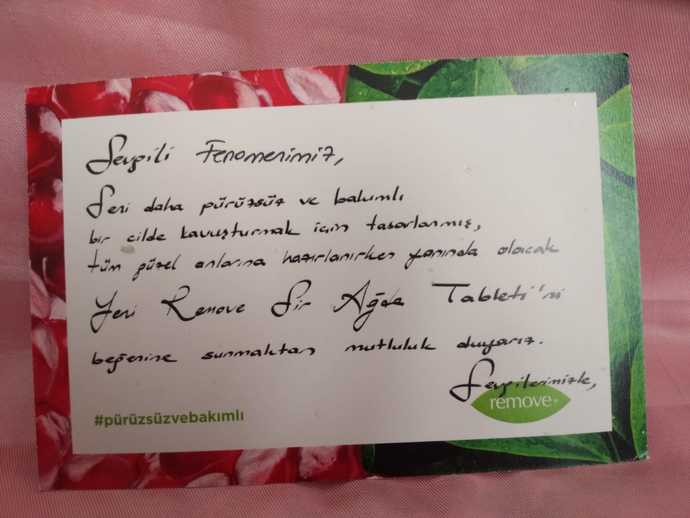 Sevgili Fenomenimiz,
Seni daha pürüzsüz ve bakımlı
bir cilde kavuşturmak için tasarlanmış,
tüm güzel anlarına hazırlanırken yanında olacak
Yeni Remove Sir Ağda Tableti'ni
beğenine sunmaktan mutluluk duyarız.
Sevgilerimizle,
remove
#pürüzsüzvebakımlı